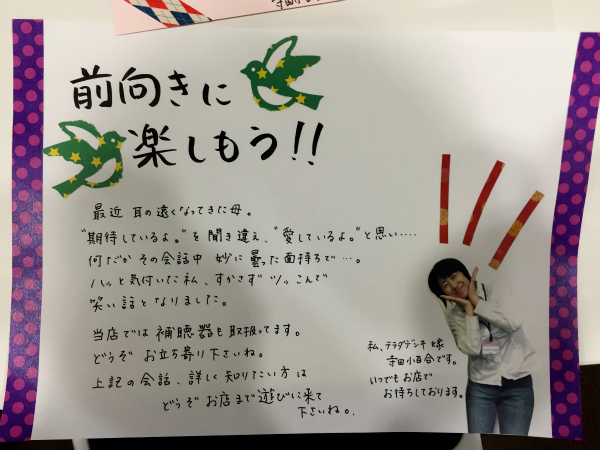 前向きに
楽しもう!!
最近 耳の遠くなってきた母。
"期待しているよ。"を聞き違え、"愛しているよ。"と思い……
何だか その会話中 妙に曇った面持ちで…。
ハッと気付いた私、すかさず ツッこんで
笑い話となりました。
当店では 補聴器も取扱ってます。
どうぞ お立ち寄り下さいね。
上記の会話、詳しく知りたい方は
どうぞ お店まで遊びに来て
下さいね。
私、テラダデンキ 嫁
寺田小百合です。
いつでもお店で
お待ちしております。